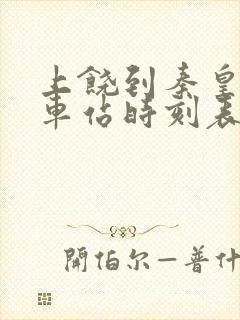 上饶到秦皇
車站時刻表
開伯尔—普什